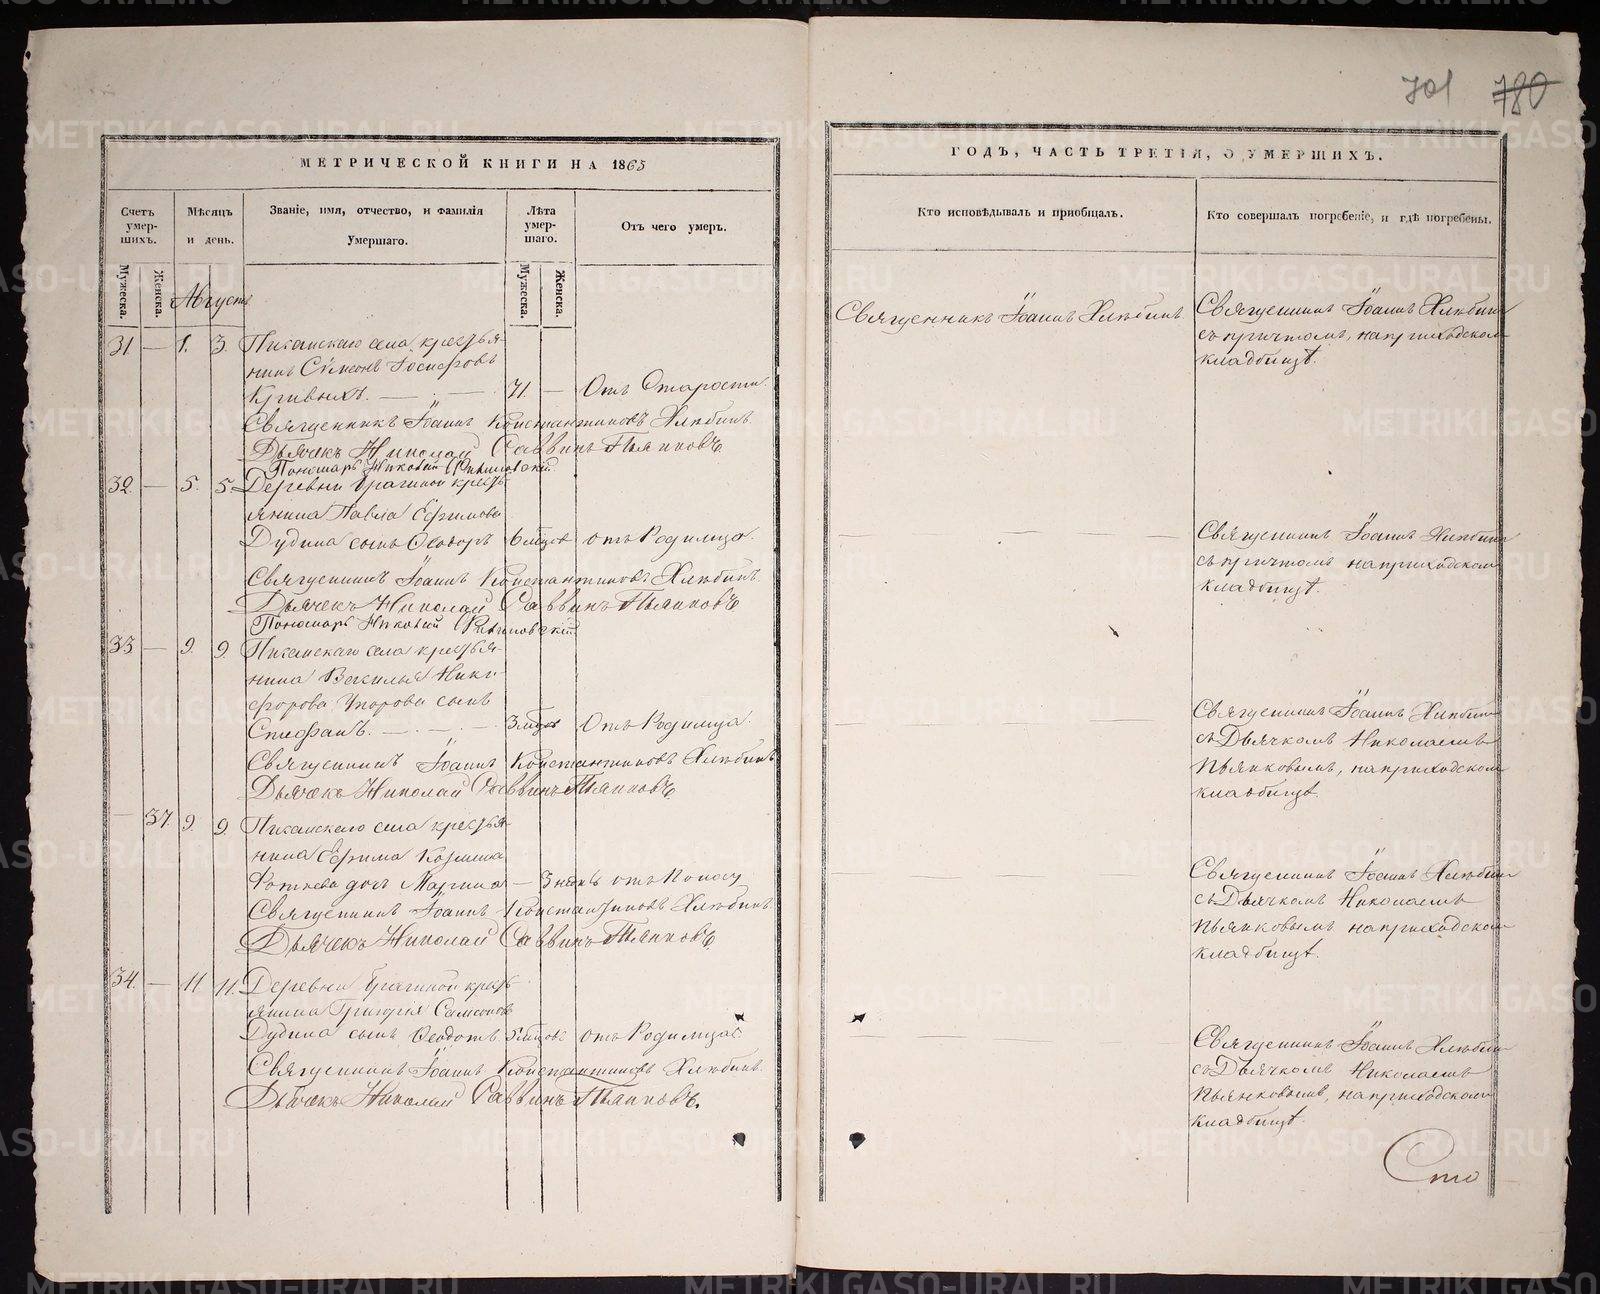 701 780
МЕТРИЧЕСКОЙ КНИГИ НА 1865
ГОДЪ, ЧАСТЬ ТРЕТІЯ, О УМЕРШИХЪ.
Счетъ умер-
шихъ.
Мѣсяцъ
и день.
Званіе, имя, отчество, и фамилія
Умершаго.
Лѣта
умер-
шаго.
Отъ чего умеръ.
Кто исповѣдывалъ и пріобщалъ.
Кто совершалъ погребеніе, и гдѣ погребены.
Мужеска.
Женска.
Мужеска.
Женска.
Августъ
31 — 1. 3. села крестья-
нинъ Сѵмеонъ Іосифовъ
Кривыхъ. — . — 71. — Отъ Старости.
Священникъ Іоаннъ Константиновъ Хлѣбинъ.
Дьячекъ Николай Саввинъ Пьянковъ
Пономарь
Священникъ Іоаннъ Хлѣбинъ
Священникъ Іоаннъ Хлѣбинъ
съ причтомъ, на приходскомъ
кладбищѣ.
32. — 5. 5. Деревни крестья-
янина Павла Ефимова
Дудина сынъ Ѳеодоръ 6 мѣцовъ отъ Родимца.
Священникъ Іоаннъ Константиновъ Хлѣбинъ.
Дьячекъ Николай Саввинъ Пьянковъ
Пономарь
Священникъ Іоаннъ Хлѣбинъ
съ причтомъ на приходскомъ
кладбищѣ.
33 — 9. 9. села крестья-
нина Василья Ники-
форова сынъ
Стефанъ. — . — . — 3 мѣцовъ Отъ Родимца.
Священникъ Іоаннъ Константиновъ Хлѣбинъ
Дьячекъ Николай Саввинъ Пьянковъ.
Священникъ Іоаннъ Хлѣбинъ
съ Дьячкомъ Николаемъ
Пьянковымъ, на приходскомъ
кладбищѣ.
— 37. 9. 9. села крестья-
нина Ефима Козмина
дочь Марина — 3 недѣль отъ Поносу
Священникъ Іоаннъ Константиновъ Хлѣбинъ
Дьячекъ Николай Саввинъ Пьянковъ
Священникъ Іоаннъ Хлѣбинъ
съ Дьячкомъ Николаемъ
Пьянковымъ на приходскомъ
кладбищѣ.
34. — 11. 11. Деревни кресть-
янина Григорія Самсонова
Дудина сынъ Ѳеодотъ 5 мѣцовъ отъ Родимца
Священникъ Іоаннъ Константиновъ Хлѣбинъ.
Дьячекъ Николай Саввинъ Пьянковъ.
Священникъ Іоаннъ Хлѣбинъ
съ Дьячкомъ Николаемъ
Пьянковымъ, на приходскомъ
кладбищѣ.
Сто
METRIKI.GASO-URAL.RU